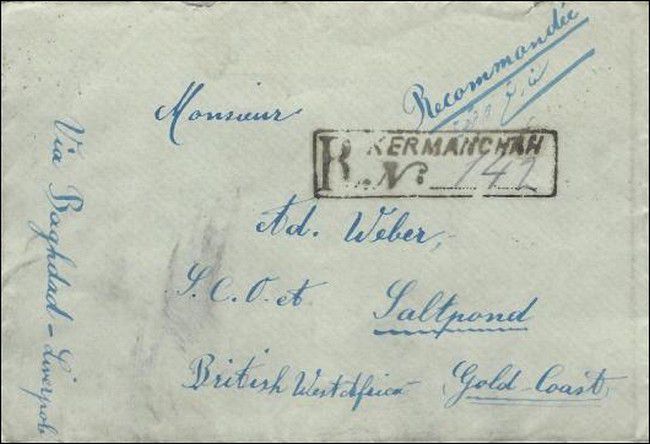 Recommandée
Monsieur
R. KERMANCHAH
No. 142
Ad. Weber,
S.C.O. et Saltpond
British West Africa Gold-Coast
Via Baghdad - Liverpol